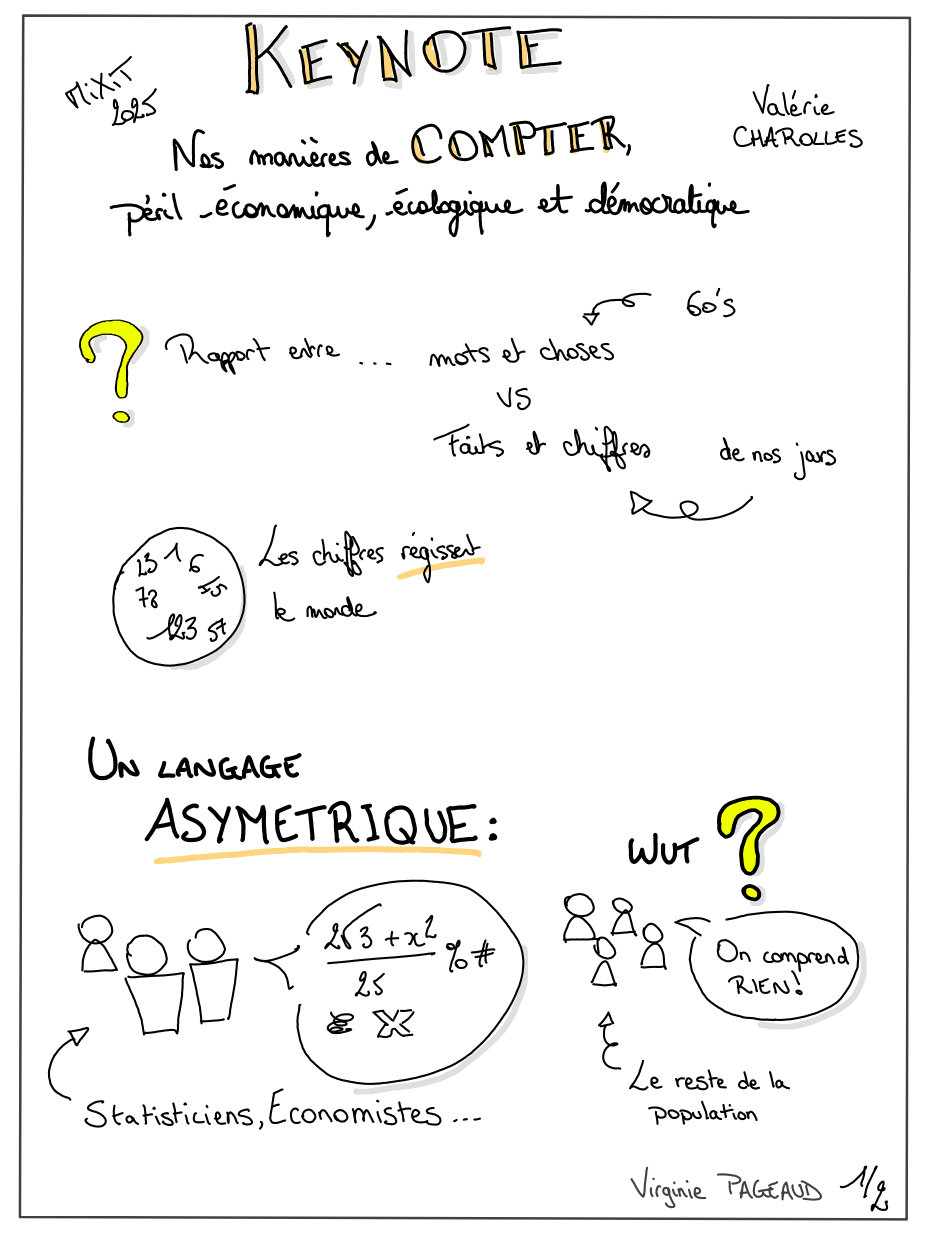 KEYNOTE
MiXiT
2025
Valérie
CHAROLLES
Nos manières de COMPTER,
péril économique, écologique et démocratique
60's
? Rapport entre ... mots et choses
VS
Faits et chiffres
de nos jours
23 1 6
78 45
123 57
Les chiffres régissent
le monde
UN LANGAGE
ASYMETRIQUE :
WUT ?
2√3 + x²
25
% #
X
On comprend
RIEN!
Statisticiens, Economistes ...
Le reste de la
population
Virginie PAGEAUD 1/2